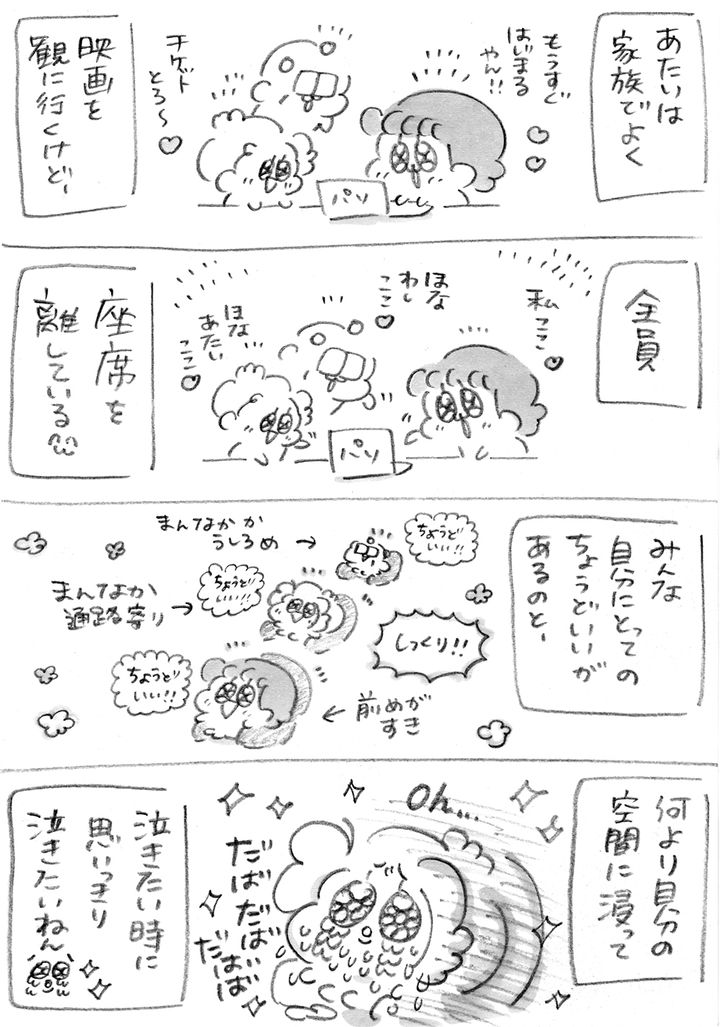 あたいは
家族でよく
もうすぐ
はじまる
やん!!
チケット
とろ〜♡
パソ
映画を
観に行くけどｰ
全員
私
ここ♡
ほな
わし
ここ♡
ほな
あたい
ここ♡
パソ
座席を
離している
みんな
自分にとっての
ちょうどいいが
あるのとｰ
まんなかか
うしろめ→
ちょうど
いい!!
まんなか
通路寄り→
ちょうど
いい!!
しっくり!!
ちょうど
いい!!
←前めが
すき
何より自分の
空間に浸って
Oh...
だばだばだば
だばば
泣きたい時に
思いっきり
泣きたいねん